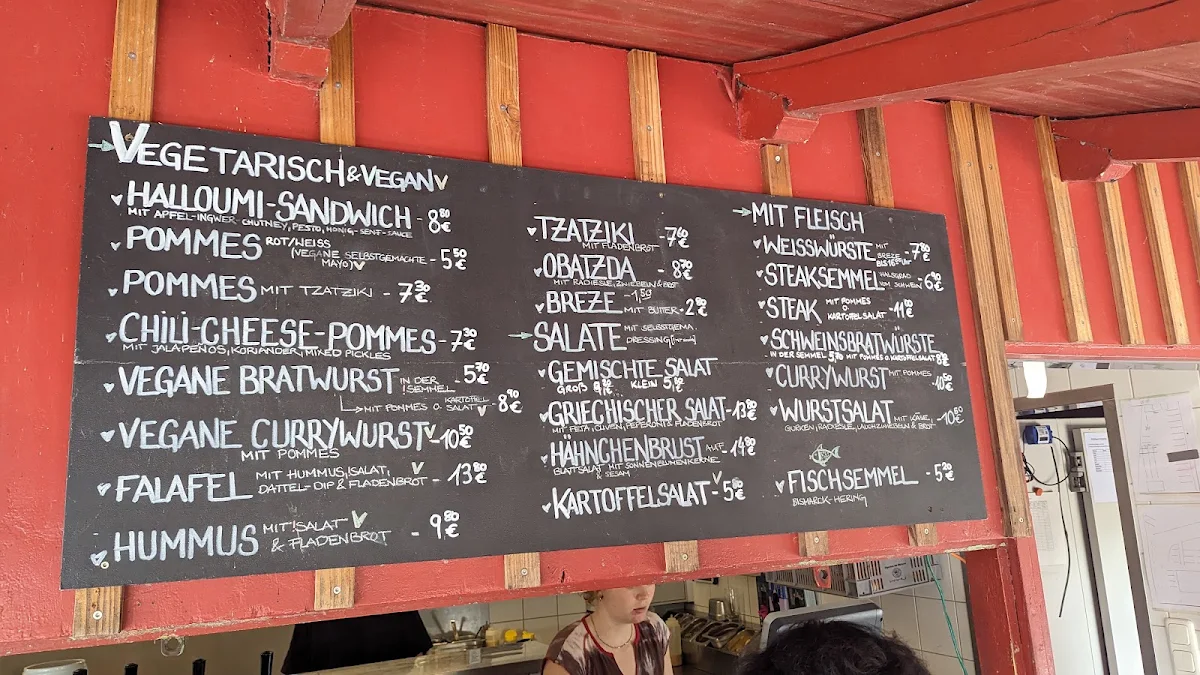 VEGETARISCH & VEGAN V
HALLOUMI-SANDWICH - 880 €
MIT APFEL-INGWER-CHUTNEY, PESTO, HONIG-SENF-SAUCE
POMMES ROT/WEISS - 5 50 €
(VEGANE SELBSTGEMACHTE
MAYO) V
POMMES MIT TZATZIKI - 7 30 €
CHILI-CHEESE-POMMES - 7 30 €
MIT JALAPEÑOS, KORIANDER, MIXED PICKLES
VEGANE BRATWURST IN DER - 5 70 €
SEMMEL
MIT POMMES O. KARTOFFEL-
SALAT V - 8 90 €
VEGANE CURRYWURST V - 10 50 €
MIT POMMES
FALAFEL MIT HUMMUS, SALAT, V
DATTEL-DIP & FLADENBROT - 13 80 €
HUMMUS MIT SALAT V
& FLADENBROT - 9 80 €
TZATZIKI - 7 60 €
MIT FLADENBROT
OBATZDA - 8 70 €
MIT RADIESLE, ZWIEBELN & BROT
BREZE - 1,50
MIT BUTTER - 2 90 €
SALATE MIT SELBSTGEMA.
DRESSING
GEMISCHTE SALAT
GROß KLEIN
GRIECHISCHER SALAT - 13 80 €
MIT FETA, OLIVEN, PEPERONI & FLADENBROT
HÄHNCHENBRUST AUF - 14 80 €
BLATTSALAT MIT SONNENBLUMENKERNE
& SESAM
KARTOFFELSALAT V - 5 80 €
MIT FLEISCH
WEISSWÜRSTE MIT
BREZE - 7 80 €
BIS UHR
STEAKSEMMEL HALSGRAD
VOM SCHWEIN - 6 90 €
STEAK MIT POMMES
O.
KARTOFFELSALAT - 11 80 €
SCHWEINSBRATWÜRSTE
IN DER SEMMEL 5 70 MIT POMMES O. KARTOFFELSALAT
CURRYWURST MIT POMMES - 10 50 €
WURSTSALAT MIT KÄSE, - 10 80 €
GURKEN, RADIESLE, LAUCHZWIEBELN & BROT
FISCHSEMMEL - 5 20 €
BISMARCK-HERING